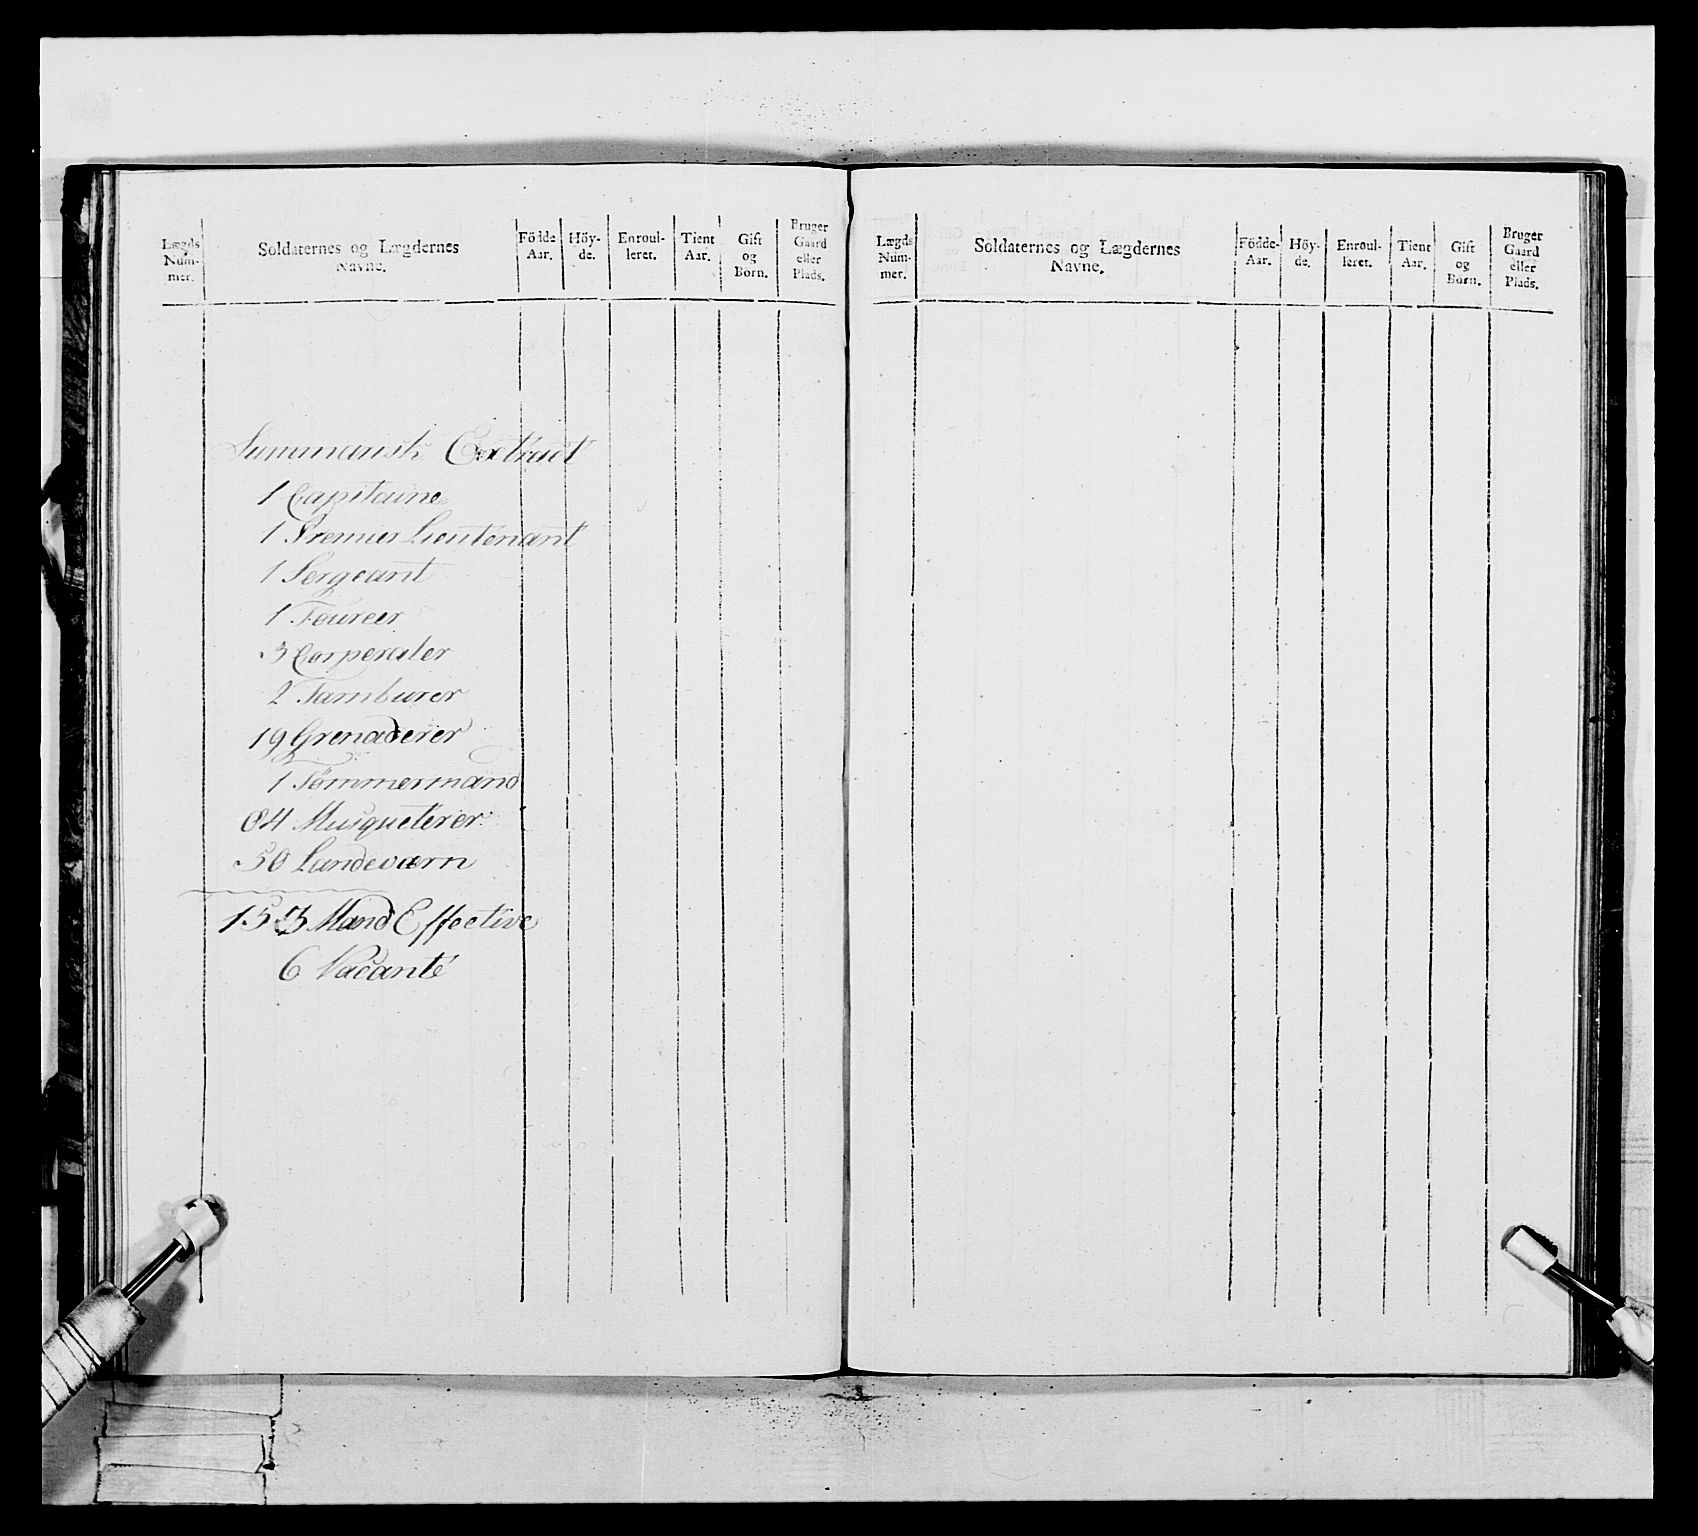 Lægds Num- mer.
Soldaternes og Lægdernes Navne.
Födde- Aar.
Höy- de.
Enroul- leret.
Tient Aar.
Gift og Börn.
Bruger Gaard eller Plads.
Summarisk Extract
1 Capitaine
1 Premier Lieutenant
1 Sergeant
1 Foureer
3 Corporaler
2 Tamburer
19 Grenaderer
1 Tømmermand
84 Musqueterer
50 Landeværn
153 Mand Effective
6 Vacante
Lægds Num- mer.
Soldaternes og Lægdernes Navne.
Födde- Aar.
Höy- de.
Enroul- leret.
Tient Aar.
Gift og Börn.
Bruger Gaard eller Plads.